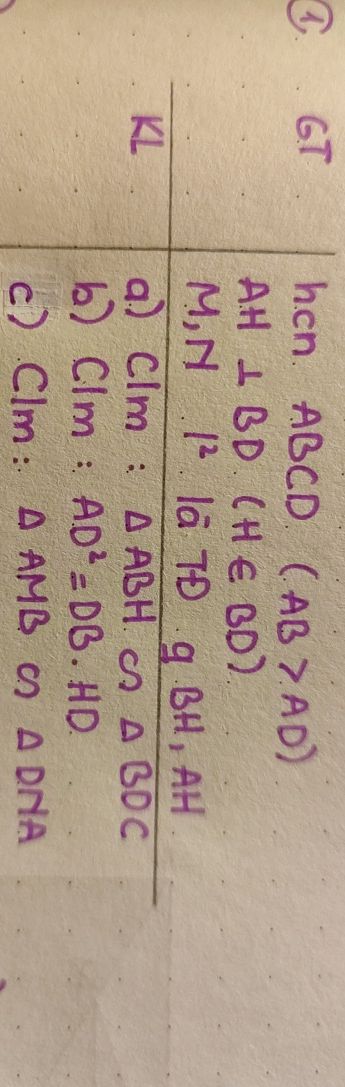 ① GT hcn ABCD (AB > AD)
AH ⊥ BD (H ∈ BD)
M, N l² là TĐ g BH, AH
KL a) C/m : Δ ABH ∽ Δ BDC
b) C/m : AD² = DB . HD
c) C/m : Δ AMB ∽ Δ DNA